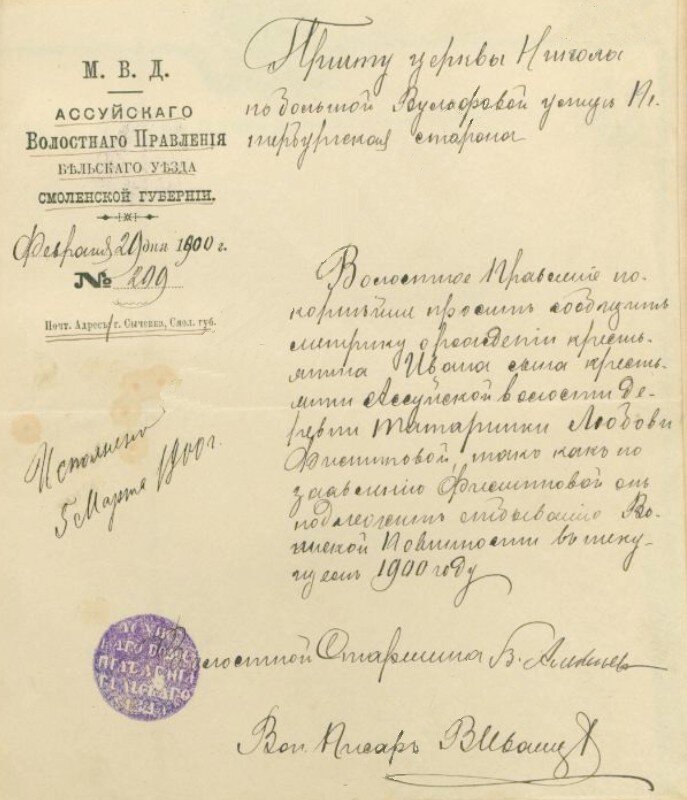 М. В. Д.
АССУЙСКАГО
ВОЛОСТНАГО ПРАВЛЕНІЯ
БѢЛЬСКАГО УѢЗДА
СМОЛЕНСКОЙ ГУБЕРНІИ.
Февраля 29 дня 1900 г.
№ 299
Почт. Адресъ: г. Сычевка, Смол. губ.
Причту церквы Никола
по большой Вульфовой улицѣ Пе-
тербургская старона
Волостное Правленіе по-
корнѣйше проситъ сообщить
метрику о рожденіи кресть-
янина Ивана сына кресть-
янки Ассуйской волости де-
ревни Татаринки Любови
Филиповой, такъ какъ по
заявленію Филиповой онъ
подлежитъ отбыванію Во-
инской Повинности въ теку-
щемъ 1900 году
Исполнено
5 Марта 1900 г.
Волостной Старшина В.
Вол. Писарь В Иванц